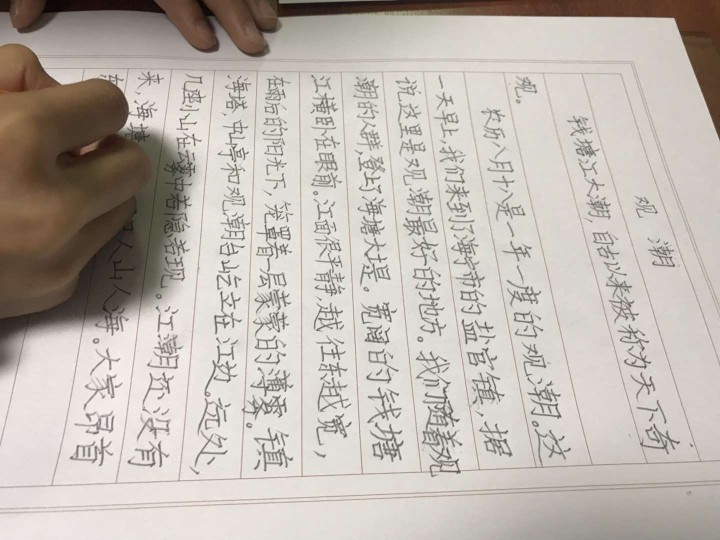 观 潮
钱塘江大潮，自古以来被称为天下奇
观。
农历八月十八是一年一度的观潮。这
一天早上，我们来到了海宁市的盐官镇，据
说这里是观潮最好的地方。我们随着观
潮的人群，登上了海塘大堤。宽阔的钱塘
江横卧在眼前。江面很平静，越往东越宽，
在雨后的阳光下，笼罩着一层蒙蒙的薄雾。镇
海塔，中山亭和观潮台屹立在江边。远处，
几座小山在云雾中若隐若现。江潮还没有
来，海塘
人山人海。大家昂首